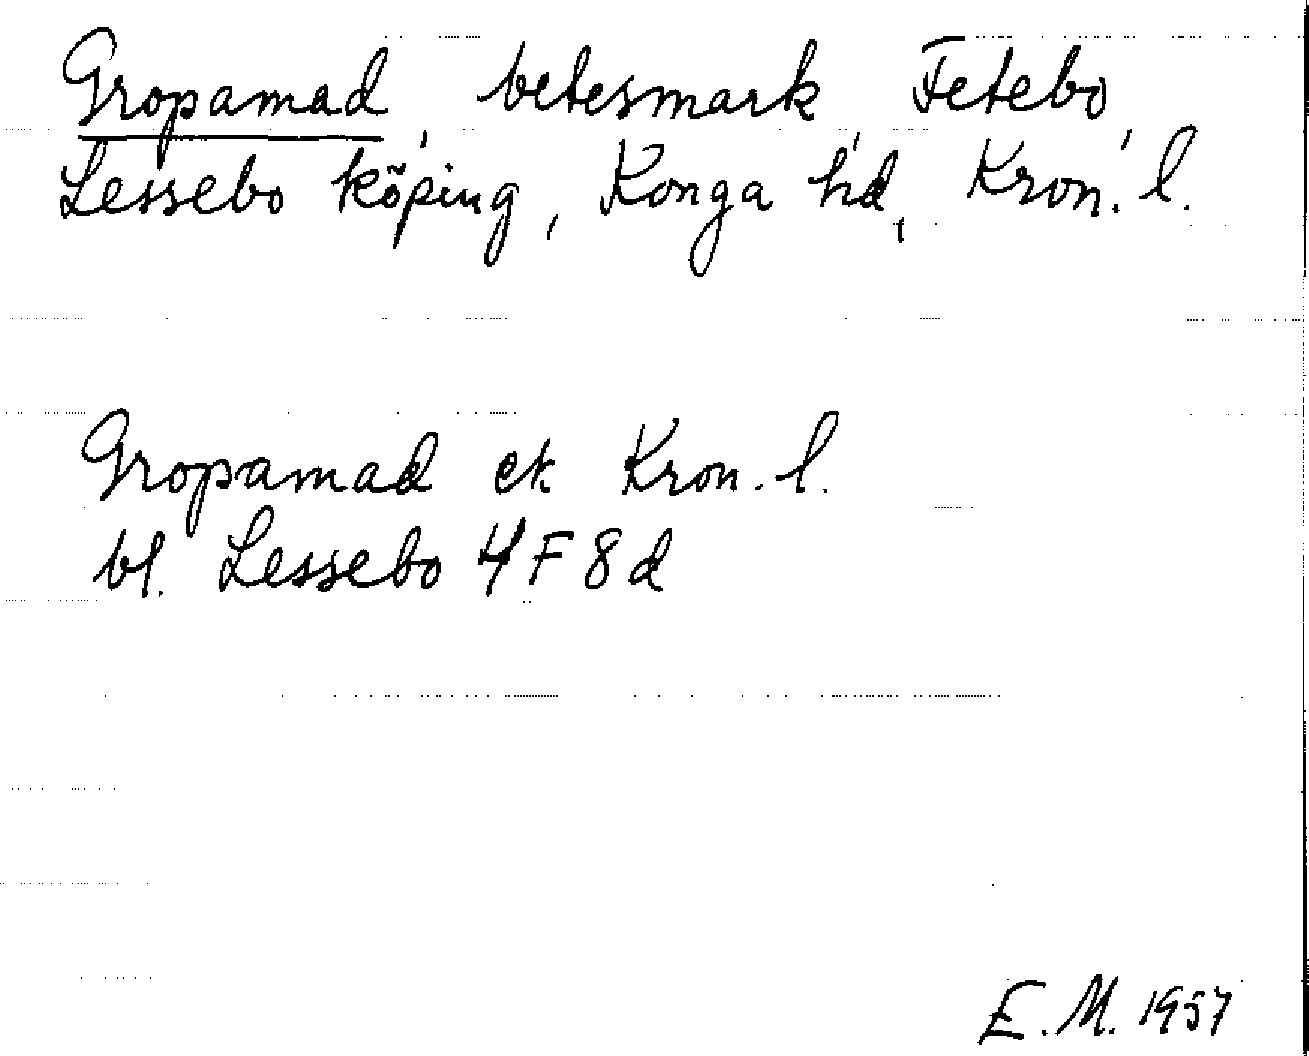 Gropamad, betesmark, Fetebo,
Lessebo köping, Konga hd, Kron. l.
Gropamad ek Kron. l.
bl. Lessebo 4F8d
E. M. 1957